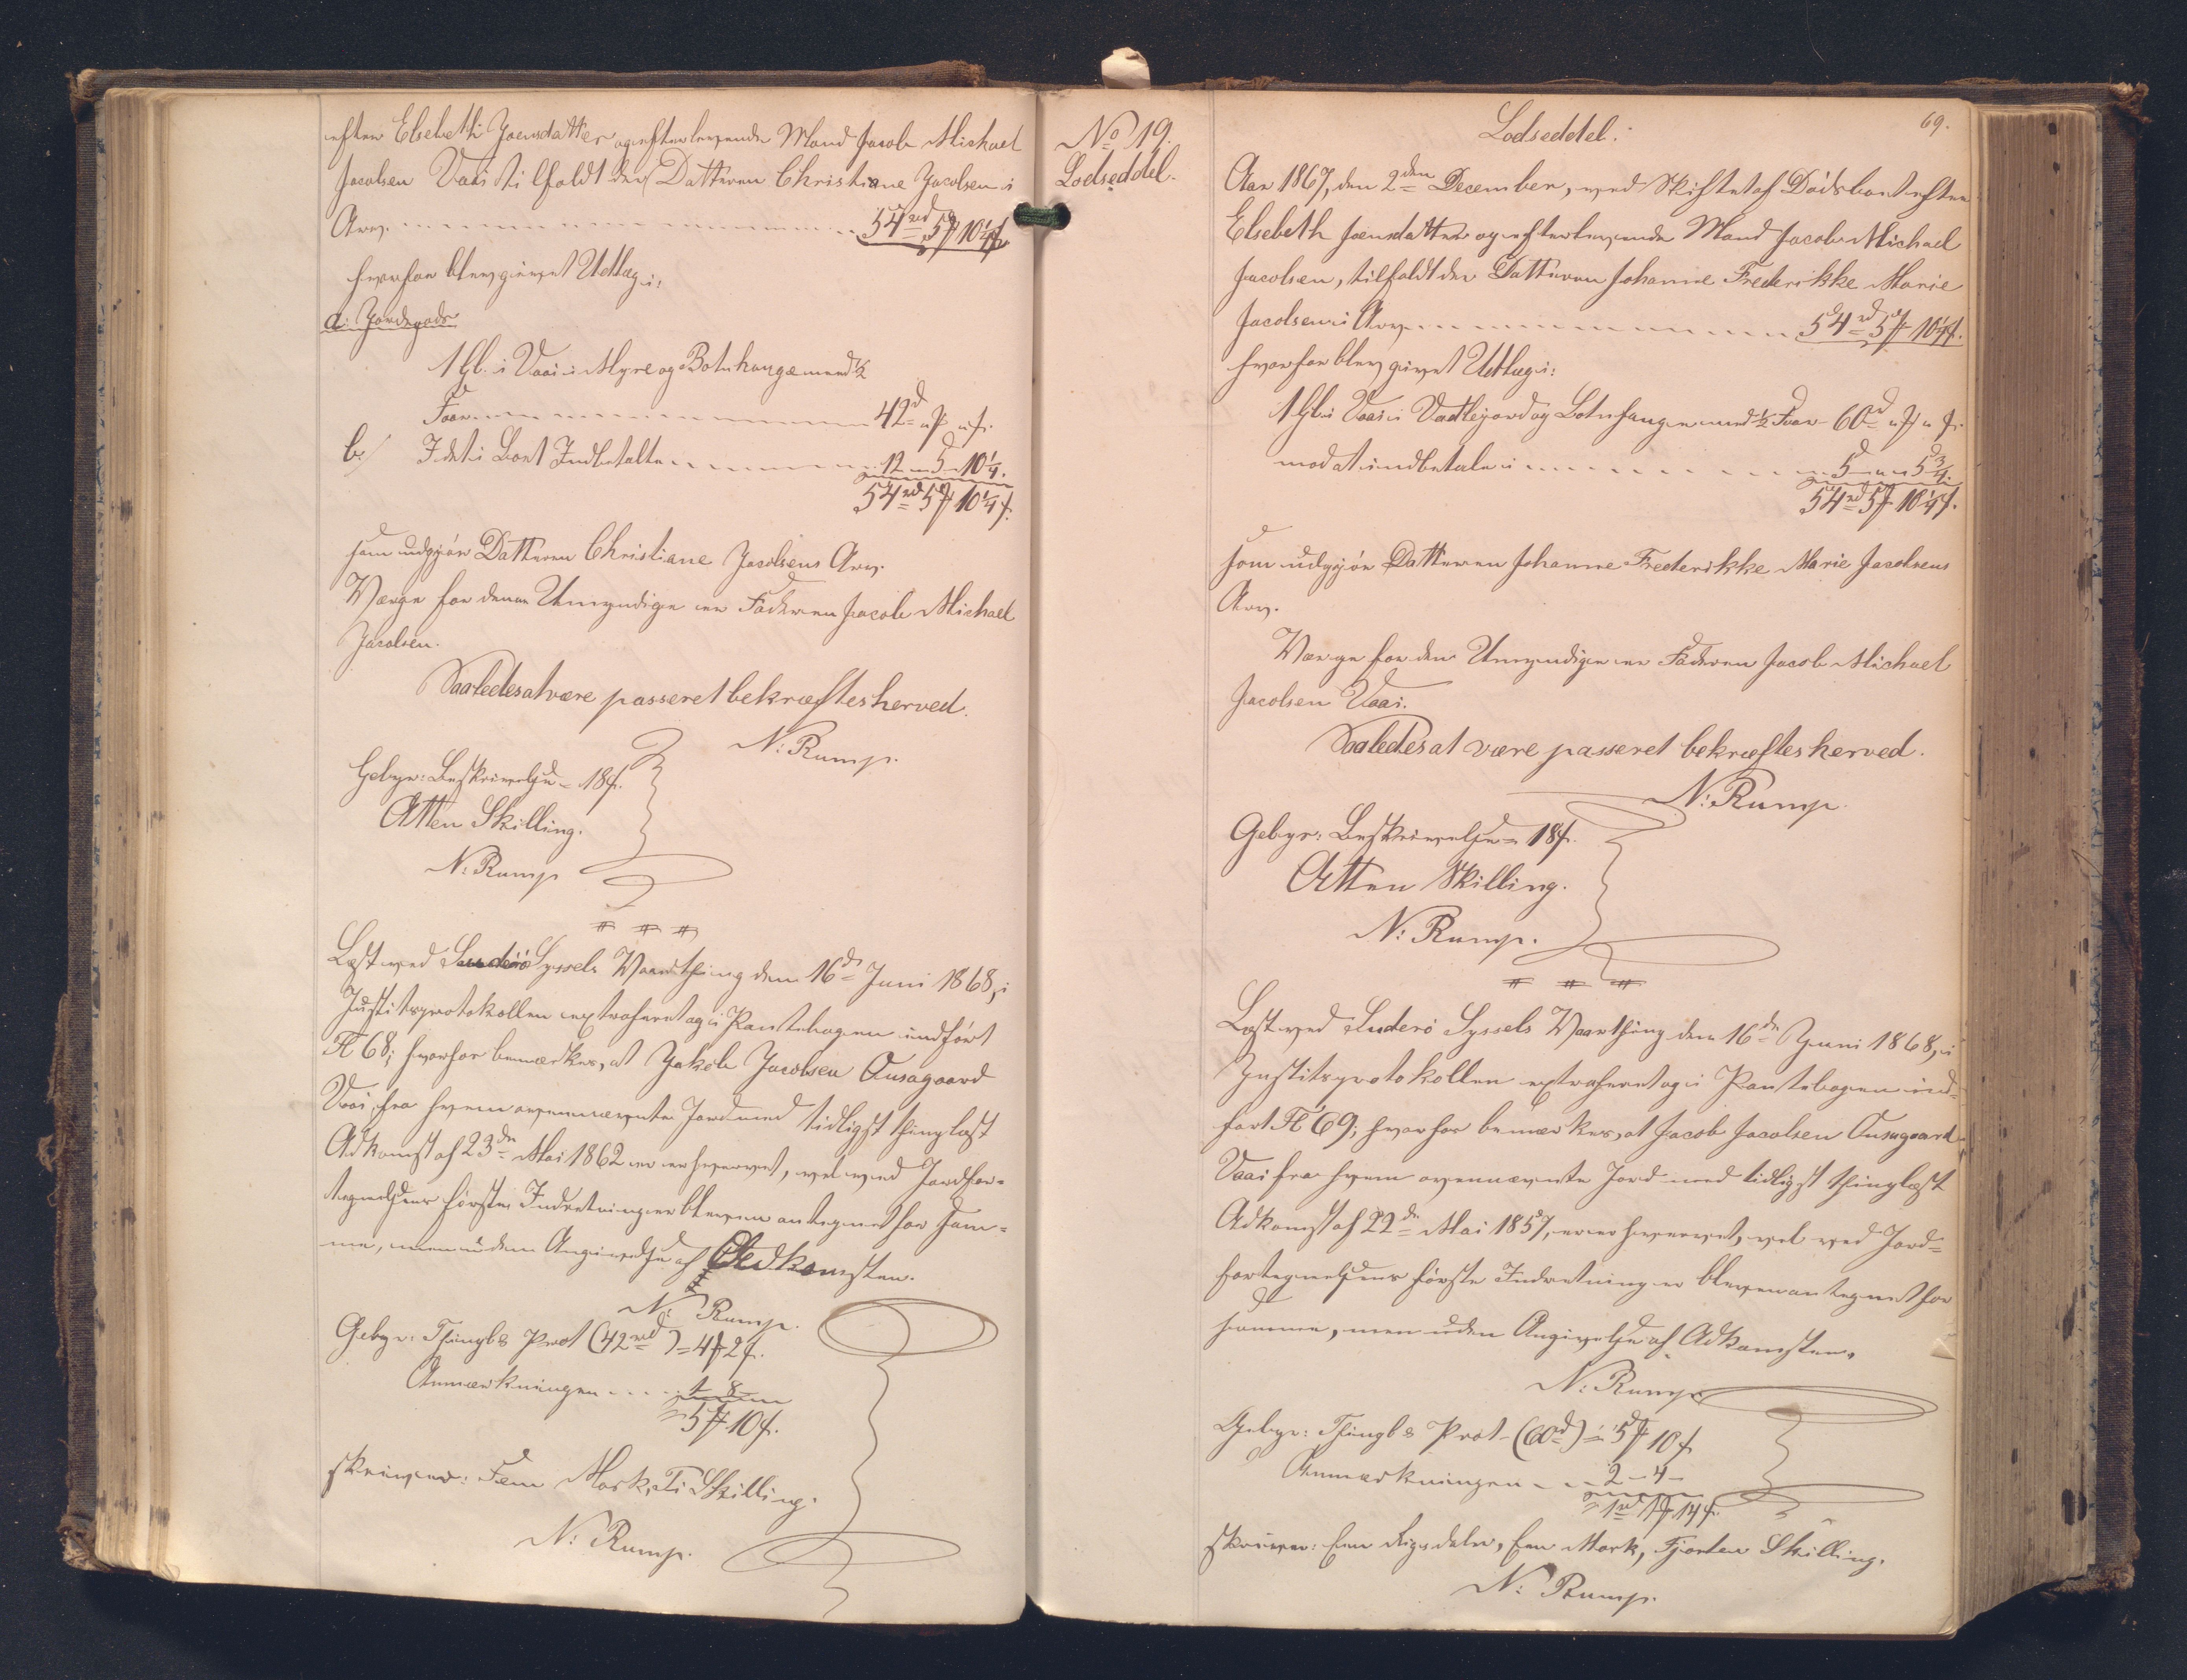 efter Elsebeth Joensdatter og efterlevende Mand Jacob Michael
Jacobsen Vaai tilfaldt der Datteren Christiane Jacobsen i
Arv. 54 rd 5 ₻ 10¼ ſ.
hvorfor blev givet Udlæg i:
a. Jordegods
1 Gl. i Vaai i Myre og Botnhauge med ½
Foer 42 d " ₻ " ſ.
b/ I det i Boet Indbetalte 12 " 5 " 10¼.
54 rd 5 ₻ 10¼ ſ.
som udgjør Datteren Christiane Jacobsens Arv.
Værge for denne Umyndige er Faderen Jacob Michael
Jacobsen.
Saaledes at være passeret bekræftes herved.
N: Rump.
Gebyr: Beskrivelse = 18 ſ.
Atten Skilling.
N: Rump
Læst ved Suderø Syssels Vaarthing den 16de Juni 1868, i
Justitsprotokollen extraheret og i Pantebogen indført
Fl 68; hvorfor bemærkes, at Jakob Jacobsen Ønsagaard
Vaai, fra hvem ovennævnte Jord med tidligst thinglæst
Adkomst af 23de Mai 1862 er erhvervet, vel ved Jordfor-
tegnelsens første Indretning er bleven antegnet for sam-
me, men uden Angivelse af Adkomsten.
N: Rump.
Gebyr: Thingl & Prot (42 rd) = 4 ₻ 2 ſ.
Anmærkningen 1 " 8 "
= 5 ₻ 10 ſ.
skriver: Fem Mark, Ti Skilling.
N: Rump.
No 19.
Lodseddel.
69.
Lodseddel:
Aar 1867, den 2den December, ved Skiftet af Dødsboet efter
Elsebeth Joensdatter og efterlevende Mand Jacob Michael
Jacobsen, tilfaldt der Datteren Johanne Frederikke Marie
Jacobsen i Arv 54 rd 5 ₻ 10¼ ſ.
hvorfor blev givet Udlæg i:
1 Gl. i Vaai i Vadlejord og Botnhauge med ½ Foer - 60 d " ₻ " ſ.
mod at indbetale i 5 " " " 5¾.
54 rd 5 ₻ 10¼ ſ.
som udgjør Datteren Johanne Frederikke Marie Jacobsens
Arv.
Værge for den Umyndige er Faderen Jacob Michael
Jacobsen Vaai.
Saaledes at være passeret bekræftes herved.
N: Rump.
Gebyr: Beskrivelse = 18 ſ.
Atten Skilling.
N: Rump.
Læst ved Suderø Syssels Vaarthing den 16de Juni 1868, i
Justitsprotokollen extraheret og i Pantebogen ind-
ført Fl 69; hvorfor bemærkes, at Jacob Jacobsen Ønsagaard
Vaai fra hvem ovennævnte Jord med tidligst thinglæst
Adkomst af 22de Mai 1857, er erhvervet, vel ved Jord-
fortegnelsens første Indretning er bleven antegnet for
samme, men uden Angivelse af Adkomsten.
N: Rump
Gebyr: Thingl & Prot (60 d) = 5 ₻ 10 ſ
Anmærkningen 2 - 4 -
= 1 rd 1 ₻ 14 ſ.
skriver: Een Rigsdaler, Een Mark, Fjorten Skilling.
N: Rump.